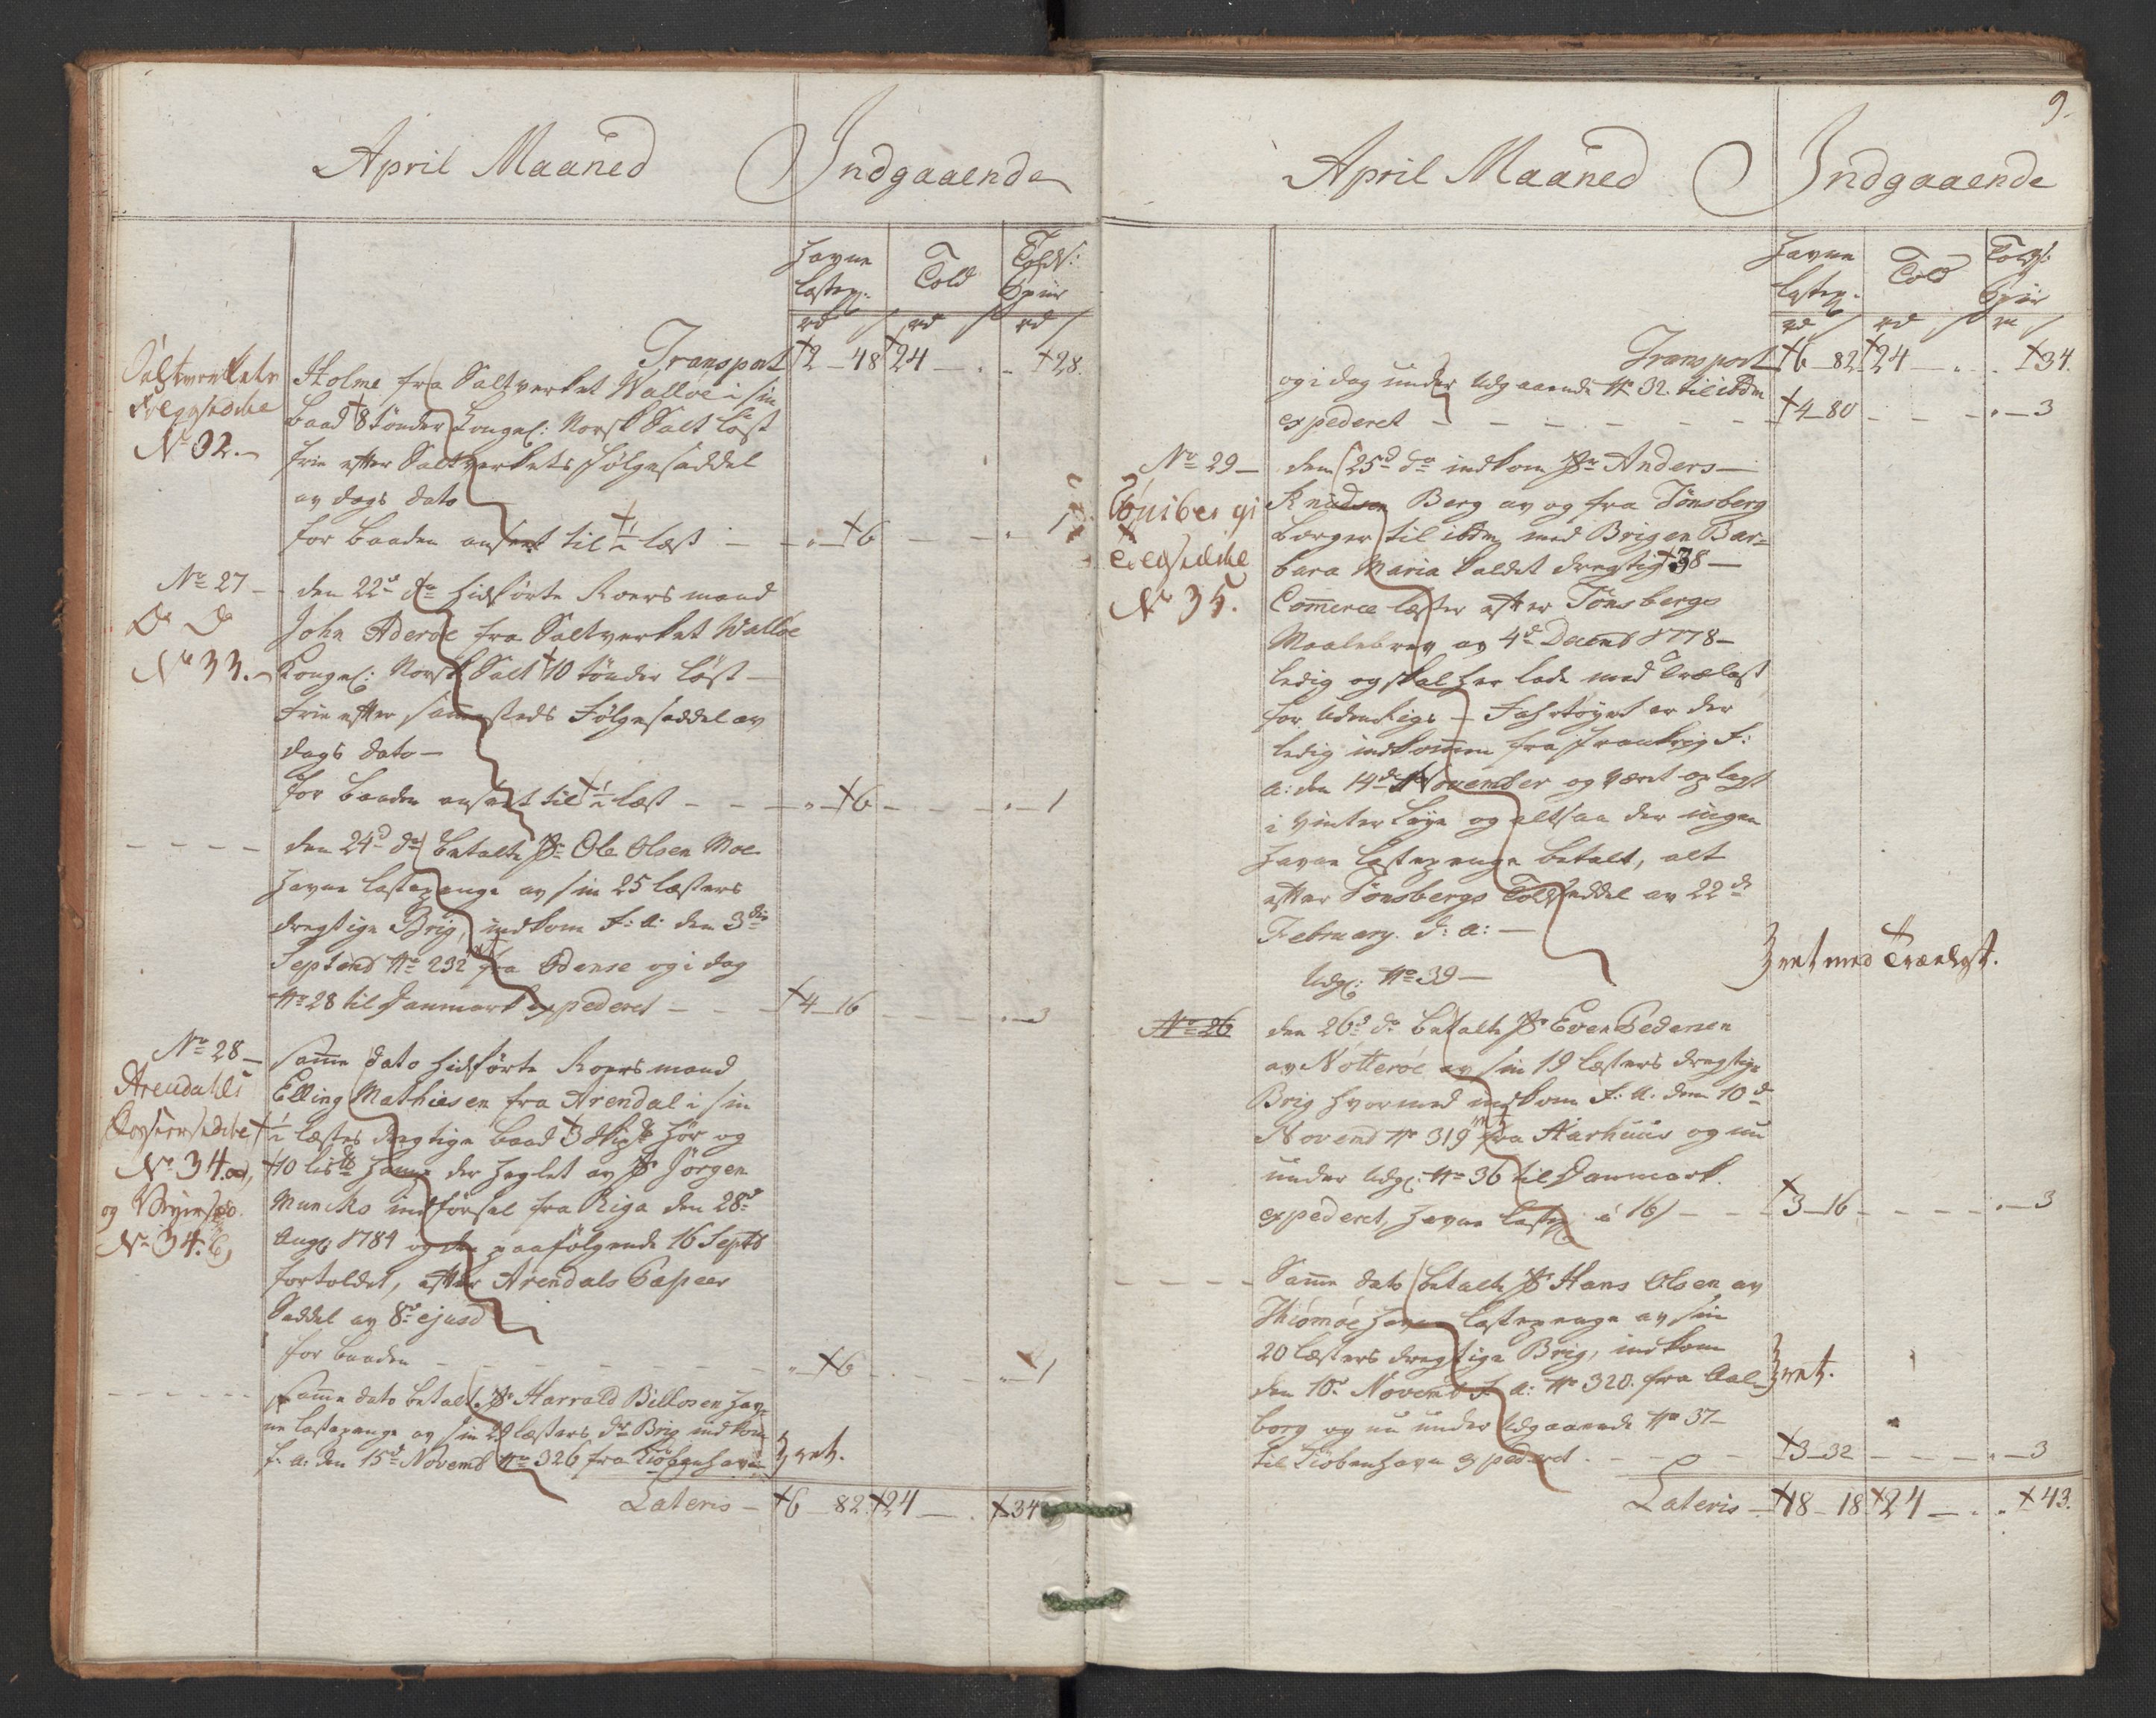 April Maaned Indgaaende
Havne
Lastep: Told Toldf: Spür
rd s rd s rd s
Transport 2 - 48 24 - . - 28.
Saltverkets
Følgseddel
No 32.-
Holme fra Saltverket Walloe i sin
baad 8 tønder Kongel: Norsk Salt løst
frie efter Saltverkets følgeseddel
av dags dato
for baaden ansat til ½ læst - - " - 6 - - " - 1
No 27 - den 22de do hidførte Roersmand
Do Do
No 33.-
John Aderøe fra Saltverket Walløe
Kongel: Norsk Salt 10 tønder løst -
frie efter sammesteds Følgeseddel av
dags dato -
for baaden ansat til ½ læst - - - " - 6 - - - " - 1
den 24d do betalte Sr Ole Olsen Moe
Havne lastepenge av sin 25 læsters
dregtige Brig, indkom f: a: den 3die
Septemb No 232 fra Odense og i dag
No 28 til Danmark expederet - - - 4 - 16 - - - " - 3
No 28 -
Arendahls
No 34. a,
og
No 34. b,
Samme dato hidførte Roersmand
Elling Mathiesen fra Arendal i sin
½ læsters dregtige baad 3 Skip℔ Hør og
10 lis℔ Hamp der Heglet av Sr Jørgen
Muncks indførsel fra Riga den 28de
Aug: 1784 og den paafølgende 16 Septb
fortoldet, efter Arendals Passeer
Seddel av 8de ejusd
for baaden - - - " - 6 - - - " - 1
Samme dato betalte Sr Harrald Billosen Hav=
ne lastepenge av sin 29 læsters do Brig indkom
f: a: den 15d Novemb No 326 fra Kiøbenhavn
Lateris - 6 - 82 24 - . 34
9.
April Maaned Indgaaende
Havne
Lastep. Told Toldf: Spür
rd s rd s rd s
Transport 6 - 82 24 - . . 34.
og i dag under Udgaaende No 32. til ibdm
expederet - - - - 4 - 80 - - - " - 3
No 29 - dem 25d do indkom Sr Anders -
Tønsbergs
Tolgseddel
No 35.
Knudsen Berg av og fra Tønsberg
borger til ibdm med Brigen Bar=
bara Maria kaldet dregtig 38 -
Commerce læster efter Tønsbergs
Maalebrev av 4d Decemb 1778 -
ledig og skal her lade med Trælast
for Udenrigs - Fahrtøyet er der
ledig indkommen fra Frankrig f:
a: den 14de November og været oplagt
i vinter leye og altsaa der ingen
Havne lastepenge betalt, alt
efter Tønsbergs Toldseddel av 22de
February. d: a: -
Udg: No 39 -
No 26 den 26d do betalte Sr Even Pedersen
av Nötteröe av sin 19 læsters dregtige
Brig hvormed indkom f: a: den 10de
Novemb No 319 fra Aarhuus og nu
under Udg: No 36 til Danmark.
expederet, Havne lastep: á 16 s - - - 3 - 16 - - - - " - 3
Samme dato betalte Sr Hans Olsen av
Thiömöe Havne lastepenge av sin
20 læsters dregtige Brig, indkom
den 10de Novemb f: a: No 320. fra Aal=
borg og nu under Udgaaende No 37 -
til Kiøbenhavn expederet. - - - 3 - 32 - - - - " - 3
Lateris - 18 - 18 24 - . . 43.